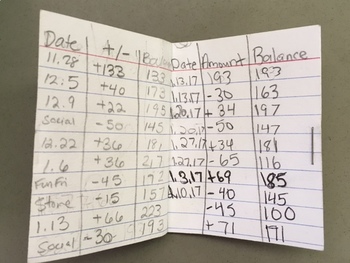 Date +/- Balan
11.28 +133 133
12.5 +40 173
12.9 +22 195
Social -50 145
12.22 +36 181
1.6 +36 217
Fun Fri -45 172
Store -15 157
1.13 +66 223
Social -30 193
Date Amount Balance
1.13.17 193 193
1.13.17 -30 163
1.20.17 +34 197
1.20.17 -50 147
1.27.17 +34 181
1.27.17 -65 116
+69 185
-40 145
-45 100
+71 171